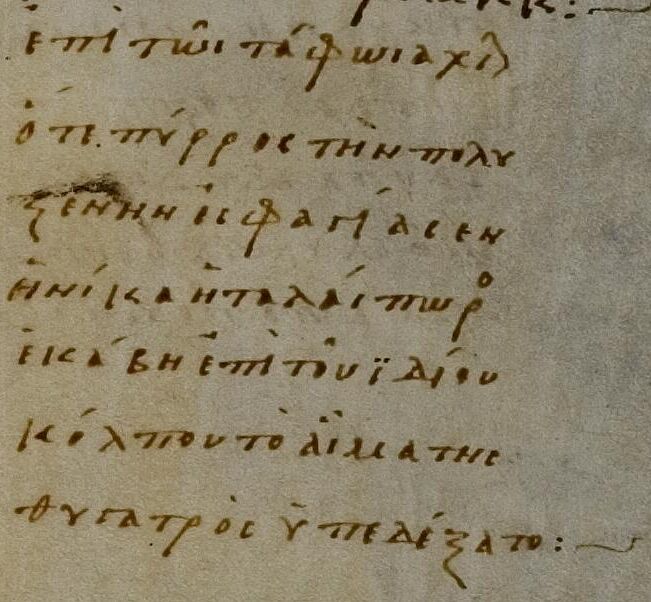 ἐπὶ τῶι τάφωι ἀχιλ
ὅτε πύρρος τὴν πολυ
ξένην ἐσφαγίασεν
ἡνίκα ἡ ταλάιπωρο
ἑκάβη ἐπὶ τοῦ ϊδίου
κόλπου τὸ αἷμα τῆς
θυγατρὸς ὑπεδέξατο: